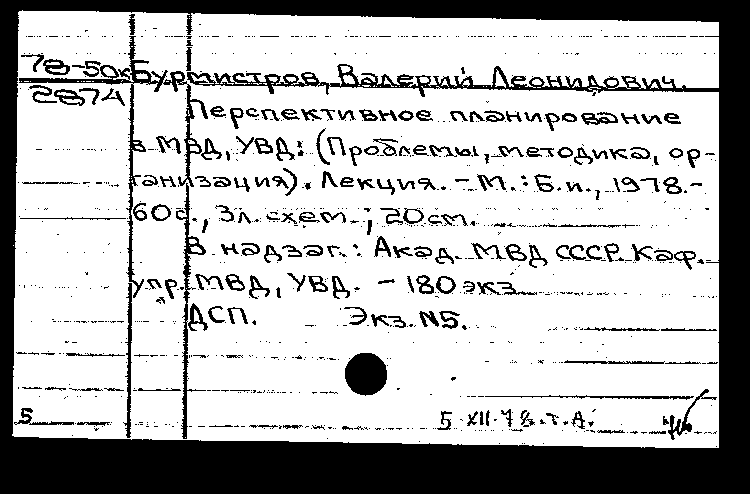 78-50к Бурмистров, Валерий Леонидович.
2874
Перспективное планирование
в МВД, УВД: (Проблемы, методика, ор-
ганизация). Лекция. - М.: Б.и., 1978.-
60с., 3л. схем.; 20см.
В надзаг.: Акад. МВД СССР. Каф.
упр. МВД, УВД. - 180 экз
ДСП. Экз. N5.
5 5.XII.78.т.А.